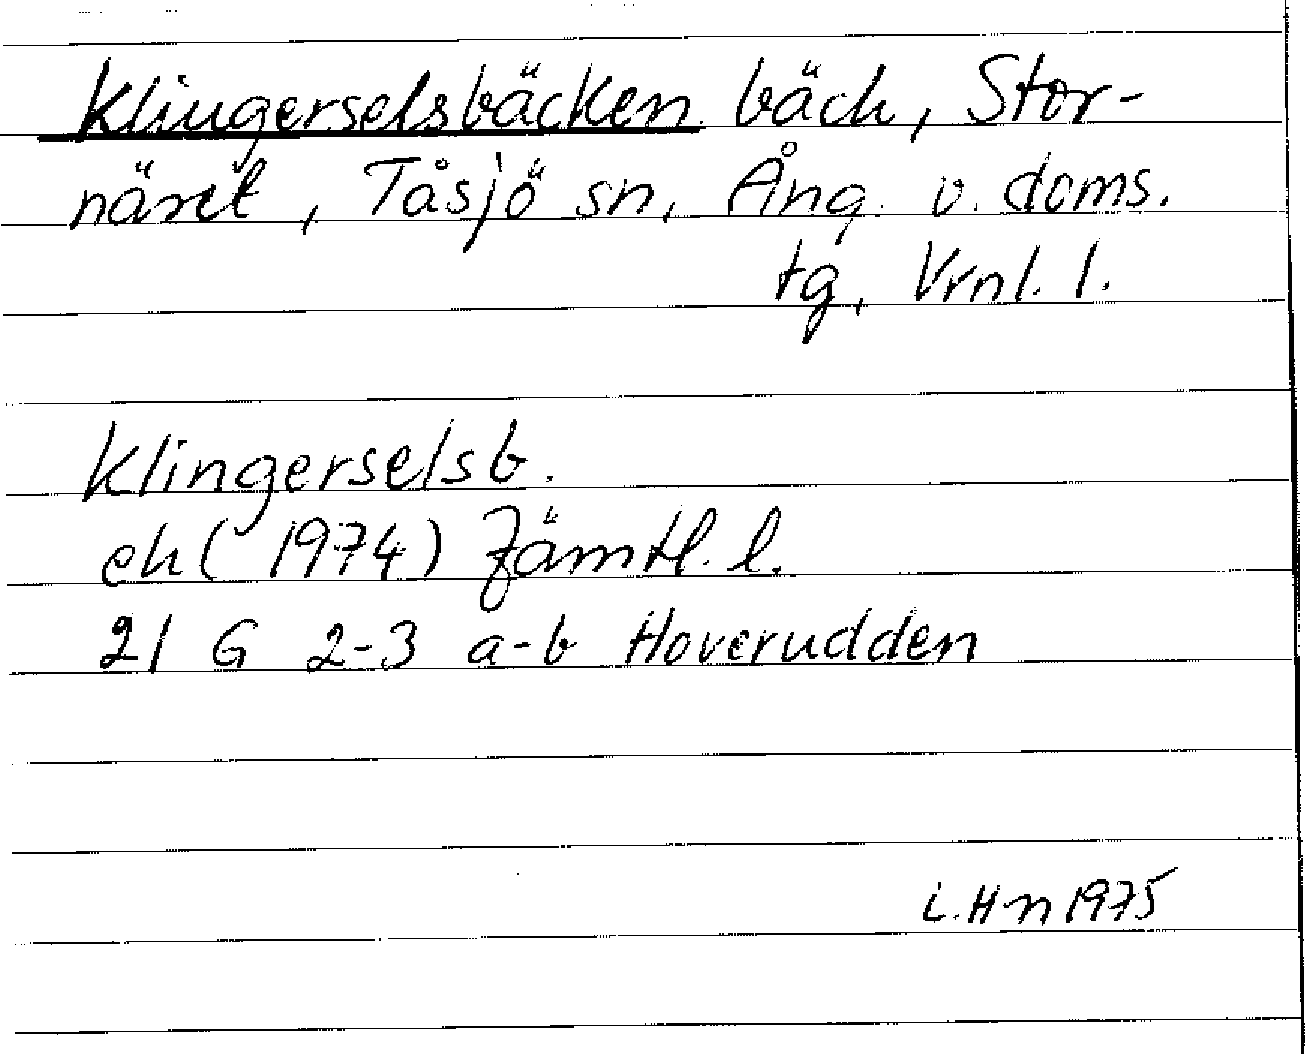 Klingerselsbäcken bäck, Stor-
näset, Tåsjö sn, Ång. v. doms.
tg, Vrnl. l.
Klingerselsb.
ek (1974) Jämtl. l.
21 G 2-3 a-b Hoverudden
L. Hn 1975